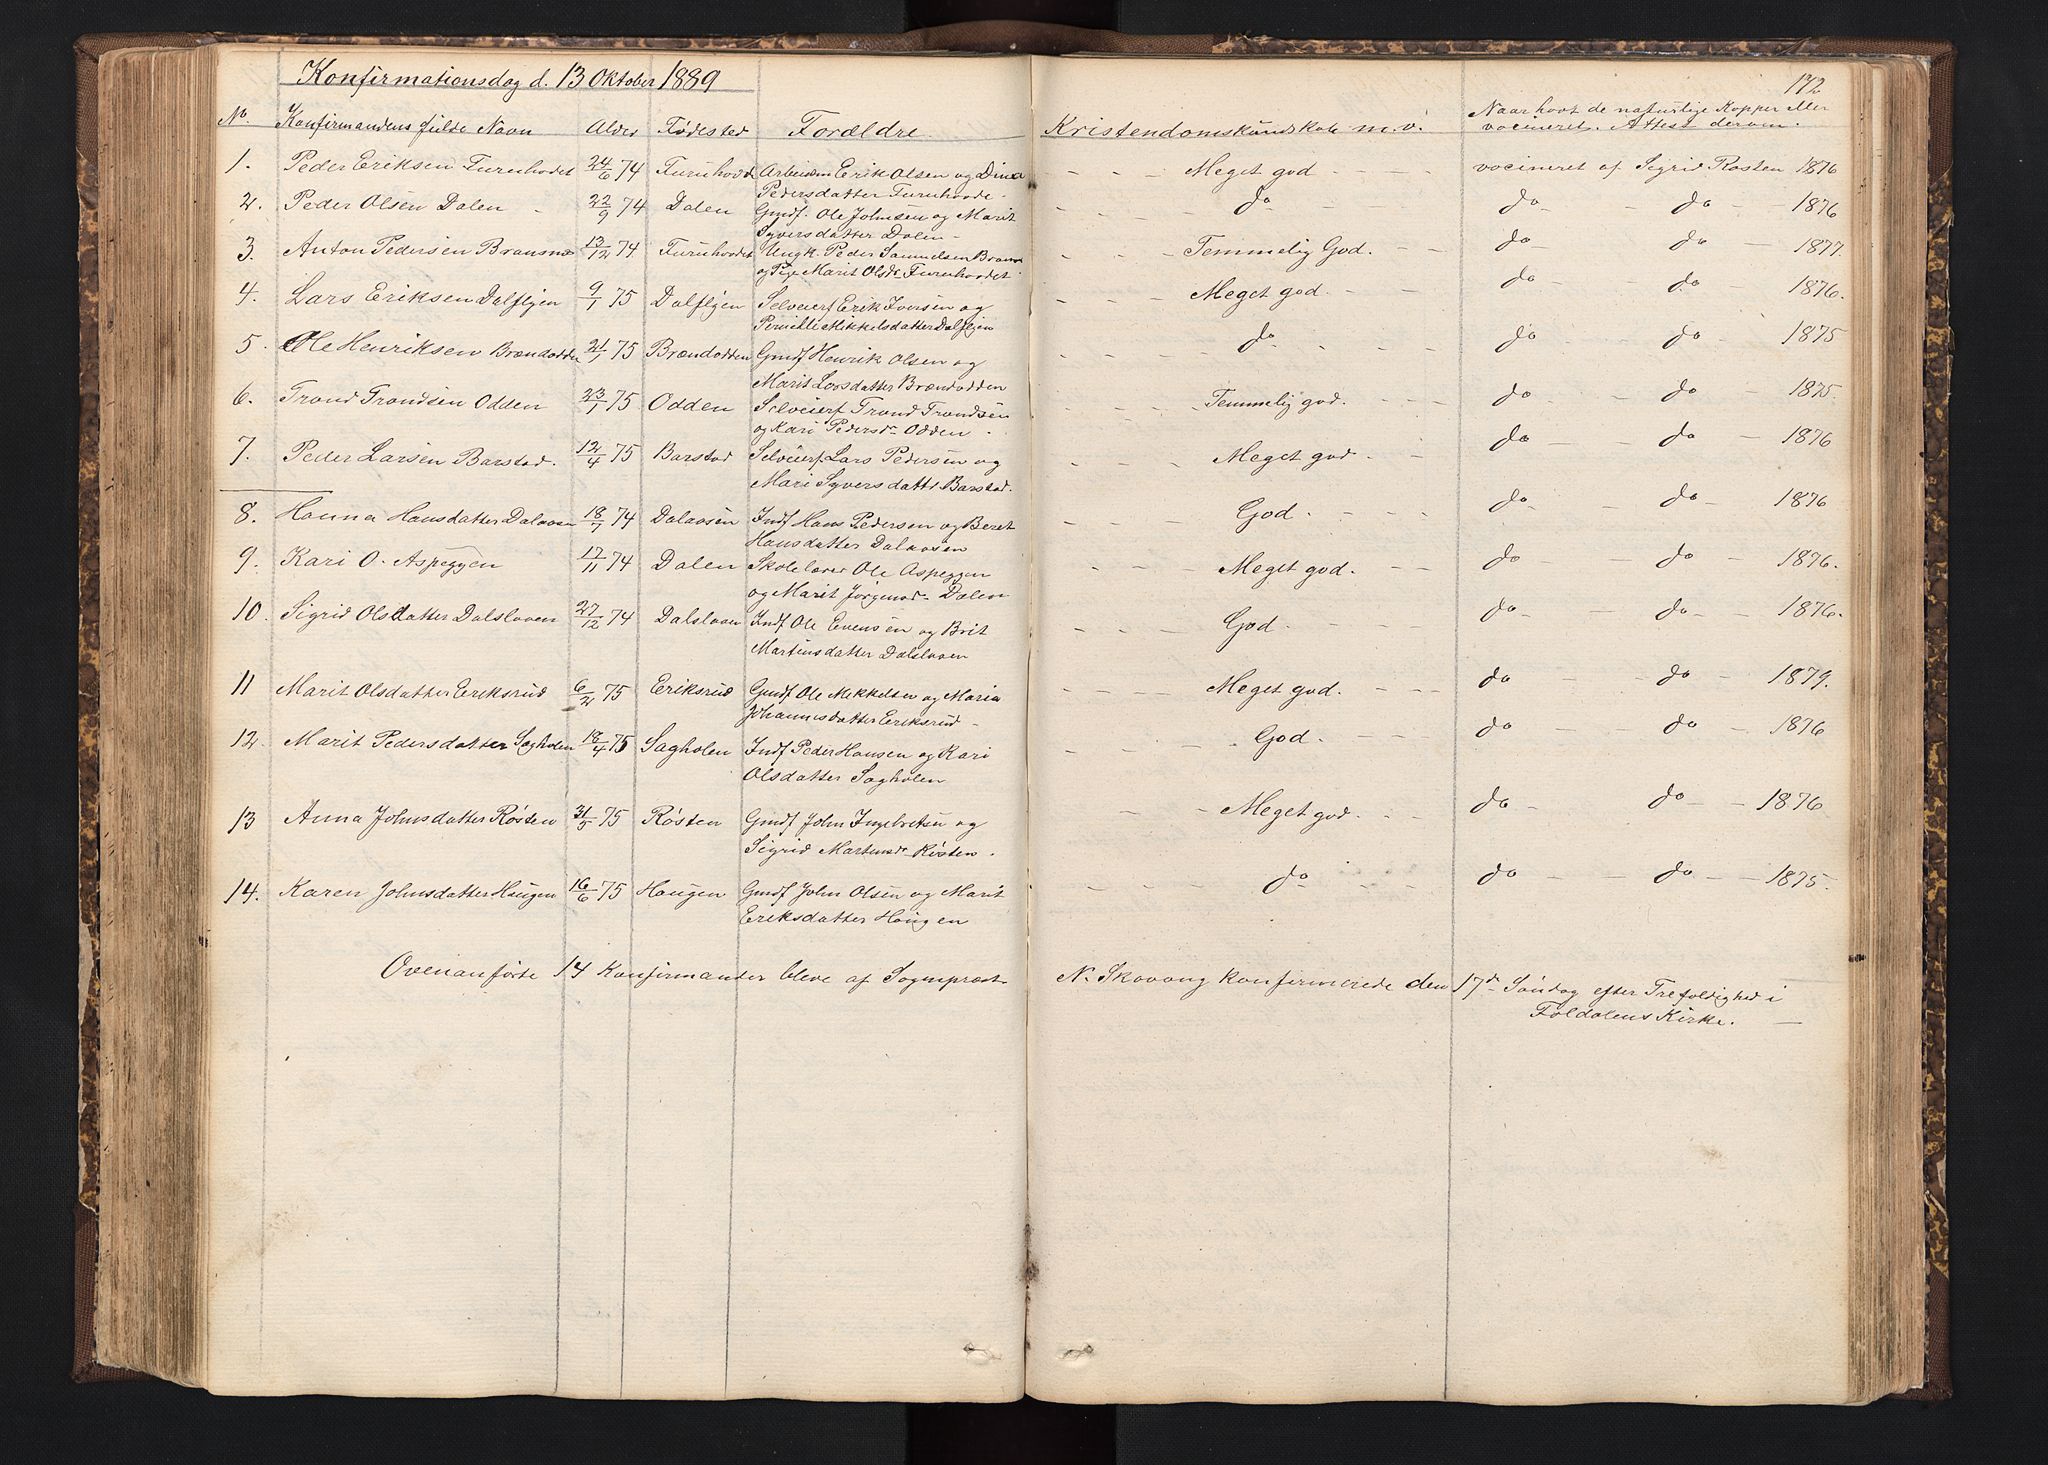 Konfirmationsdag d. 13 Oktober 1889
172
No. Konfirmandens fulde Navn Alder Fødested Forældre. Kristendomskundskab m.v. Naar havt de naturlige Kopper eller
vacineret. Attest derom.
1. Peder Eriksen Furuhovdet 24/6 74 Furuhovd Arbeidsm Erik Olsen og Dina Meget god vacineret af Sigrid Røsten 1876
Pedersdatter Furuhovde.
2. Peder Olsen Dalen 22/9 74 Dalen Gmdf. Ole Johnsen og Marit do do do 1876
Syversdatter Dalen
3. Anton Pedersen Bransnæ 13/12 74 Furuhovdet Ungk. Peder Samuelsen Bransn Temmelig God. do do 1877.
og Pige Marit Olsdr Furuhovdet.
4. Lars Eriksen Dalfljen 9/1 75 Dalfljen Selveierf Erik Iversen og Meget god. do do 1876.
Pernille Mikkelsdatter Dalfljen
5. Ole Henriksen Brændodden 21/1 75 Brændodden Gmdf Henrik Olsen og do do do 1875
Marit Larsdatter Brændodden
6. Trond Trondsen Odden 23/1 75 Odden Selveierf Trond Trondsen Temmelig god. do do 1875.
og Kari Pedersdr Odden.
7. Peder Larsen Barstad. 12/4 75 Barstad Selveierf. Lars Pedersen og Meget god. do do 1876
Mari Syversdattr Barstad.
8. Hanna Hansdatter Dalaasen 18/7 74 Dalaasen Indf Hans Pedersen og Beret God. do do 1876
Hansdatter Dalaasen
9. Kari O. Aspeggen 17/11 74 Dalen Skolelærer Ole Aspeggen Meget god. do do 1876.
og Marit Jørgensdr Dalen
10. Sigrid Olsdatter Dalslaaen 27/12 74 Dalslaaen Indf Ole Evensen og Brit God. do do 1876.
Martinsdatter Dalslaaen
11 Marit Olsdatter Eriksrud 6/2 75 Eriksrud Gmdf Ole Mikkelsen og Maria Meget god. do do 1879.
Johannesdatter Eriksrud
12. Marit Pedersdatter Sagholen 18/4 75 Sagholen Indf Peder Hansen og Kari God. do do 1876
Olsdatter Sagholen
13 Anna Johnsdatter Røsten 31/5 75 Røsten Gmdf John Ingebretsn og Meget god. do do 1876
Sigrid Martensdr Røsten.
14. Karen Johnsdatter Haugen 16/6 75 Haugen Gmdf John Olsen og Marit do do do 1875.
Eriksdatter Haugen
Ovenanførte 14 Konfirmander bleve af Sognepræst N. Skavang konfirmerede den 17de Søndag efter Trefoldighed i
Foldalens Kirke.